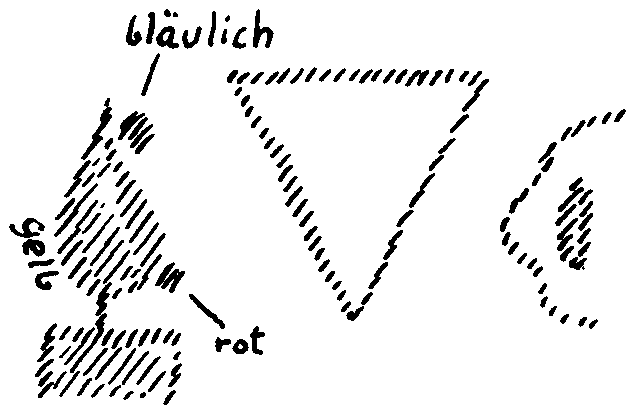 bläulich
gelb
rot